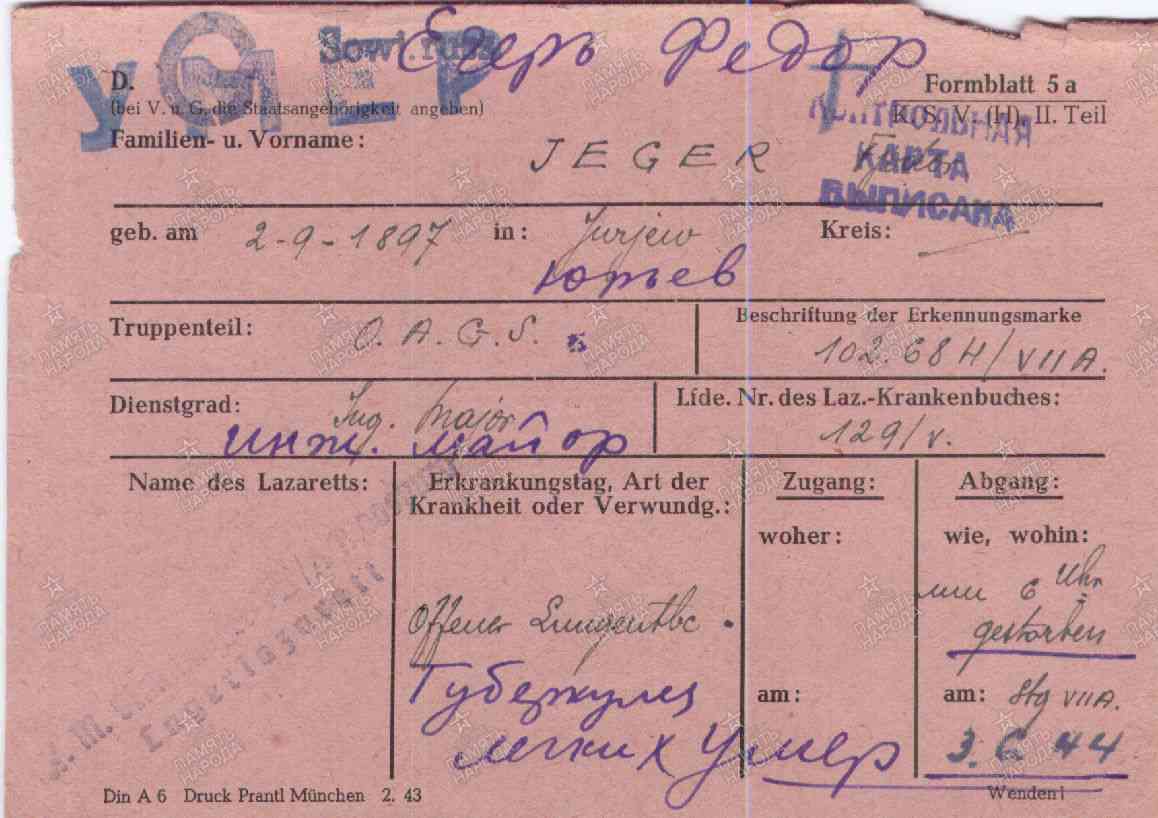 УМЕР
Егерь Федор
D.
Formblatt 5 a
(bei V. u. G. die Staatsangehörigkeit angeben)
K. S. V. (H). II. Teil
КОНТРОЛЬНАЯ
Familien- u. Vorname: JEGER
КАРТА
ВЫПИСАНА
geb. am 2-9-1897 in: Jurjew Kreis:
Юрьев
Truppenteil: O. A. G. S.
Beschriftung der Erkennungsmarke
102.68 H/VII A.
Dienstgrad: Ing. Major
инж. майор
Lfde. Nr. des Laz.-Krankenbuches:
129/V.
Name des Lazaretts:
Lagerlazarett
Erkrankungstag, Art der
Krankheit oder Verwundg.:
Offener Lungentbc.
Туберкулез
легких Умер
Zugang:
woher:
am:
Abgang:
wie, wohin:
um 6 Uhr
gestorben
am: Stg VII A.
3. 6. 44
Din A 6 Druck Prantl München 2. 43
Wenden!
ПАМЯТЬ НАРОДА